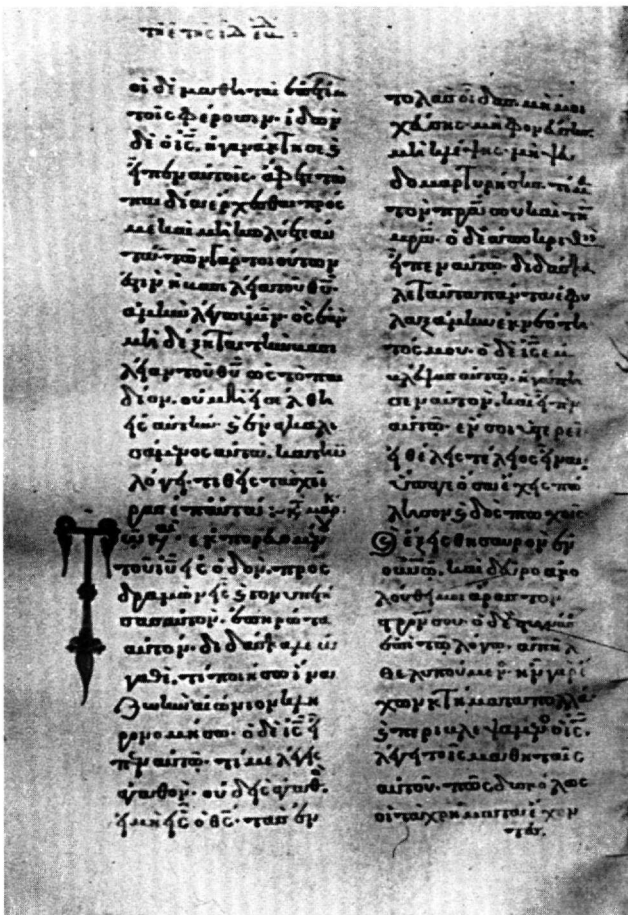 οἱ δὲ μαθηταὶ ἐπετίμων
τοῖς φέρουσιν· ἰδὼν
δὲ ὁ ις̅. ἠγανάκτησε κ
εἶπεν αὐτοῖς· ἄφετε τὰ
παιδία ἔρχεσθαι πρός
με καὶ μὴ κωλύετε αὐ
τά· τῶν γὰρ τοιούτων
ἐστὶν ἡ βασιλεία του θυ̅.
ἀμὴν λέγω ὑμῖν· ὃς ἐὰν
μὴ δέξηται τὴν βασι
λείαν τοῦ θυ̅ ὡς τὸ παι
δίον. οὐ μὴ εἰσέλθη
εἰς αὐτήν. κ ἐναγκαλι
σάμενος αὐτὰ. κατευ
λόγει. τιθεὶς τὰς χεῖ
ρας ἐπ' αὐτά:
Τῶ κρ. ἐκπορευομένου
τοῦ ιυ̅ εἰς ὁδόν. προσ
δραμὼν εἷς κ γονυπε
σας αὐτὸν. ἐπηρώτα
αὐτόν. διδάσκαλε ἀ
γαθέ. τί ποιήσω ἵνα
ζωὴν αἰώνιον κλη
ρονομήσω. ὁ δὲ ις̅ εἶ
πεν αὐτῶ. τί με λέγεις
ἀγαθόν. οὐδεὶς ἀγαθὸς
εἰ μὴ εἷς ὁ θς̅. τὰς ἐν
τολὰς οἶδας. μὴ μοι
χεύσης. μὴ φονεύσης.
μὴ κλέψης. μὴ ψευ
δομαρτυρήσης. τίμα
τὸν πρα̅ σου καὶ τὴν
μρα̅. ὁ δὲ ἀποκριθεὶς
εἶπεν αὐτῶ. διδάσκα
λε ταῦτα πάντα ἐφυ
λαξάμην ἐκ νεότη
τός μου. ὁ δὲ ις̅ ἐμ
βλέψας αὐτῶ. ἠγάπη
σεν αὐτὸν. καὶ εἶπεν
αὐτῶ. ἕν σοι ὑστερεῖ.
εἰ θέλεις τέλειος εἶναι.
ὕπαγε ὅσα ἔχεις πώ
λησον κ δὸς πτωχοῖς
κ ἕξεις θησαυρὸν ἐν
οὐνω̅. καὶ δεῦρο ἀκο
λούθει μοι ἄρας τὸν
στρον σου. ὁ δὲ στυγνάσας
ἐπὶ τῶ λόγω. ἀπῆλ
θε λυπούμενος. ἦν γὰρ ἔ
χων κτήματα πολλά
κ περιβλεψάμενος ὁ ις̅.
λέγει τοῖς μαθηταῖς
αὐτοῦ. πῶς δυσκόλως
οἱ τὰ χρήματα ἔχον
τες